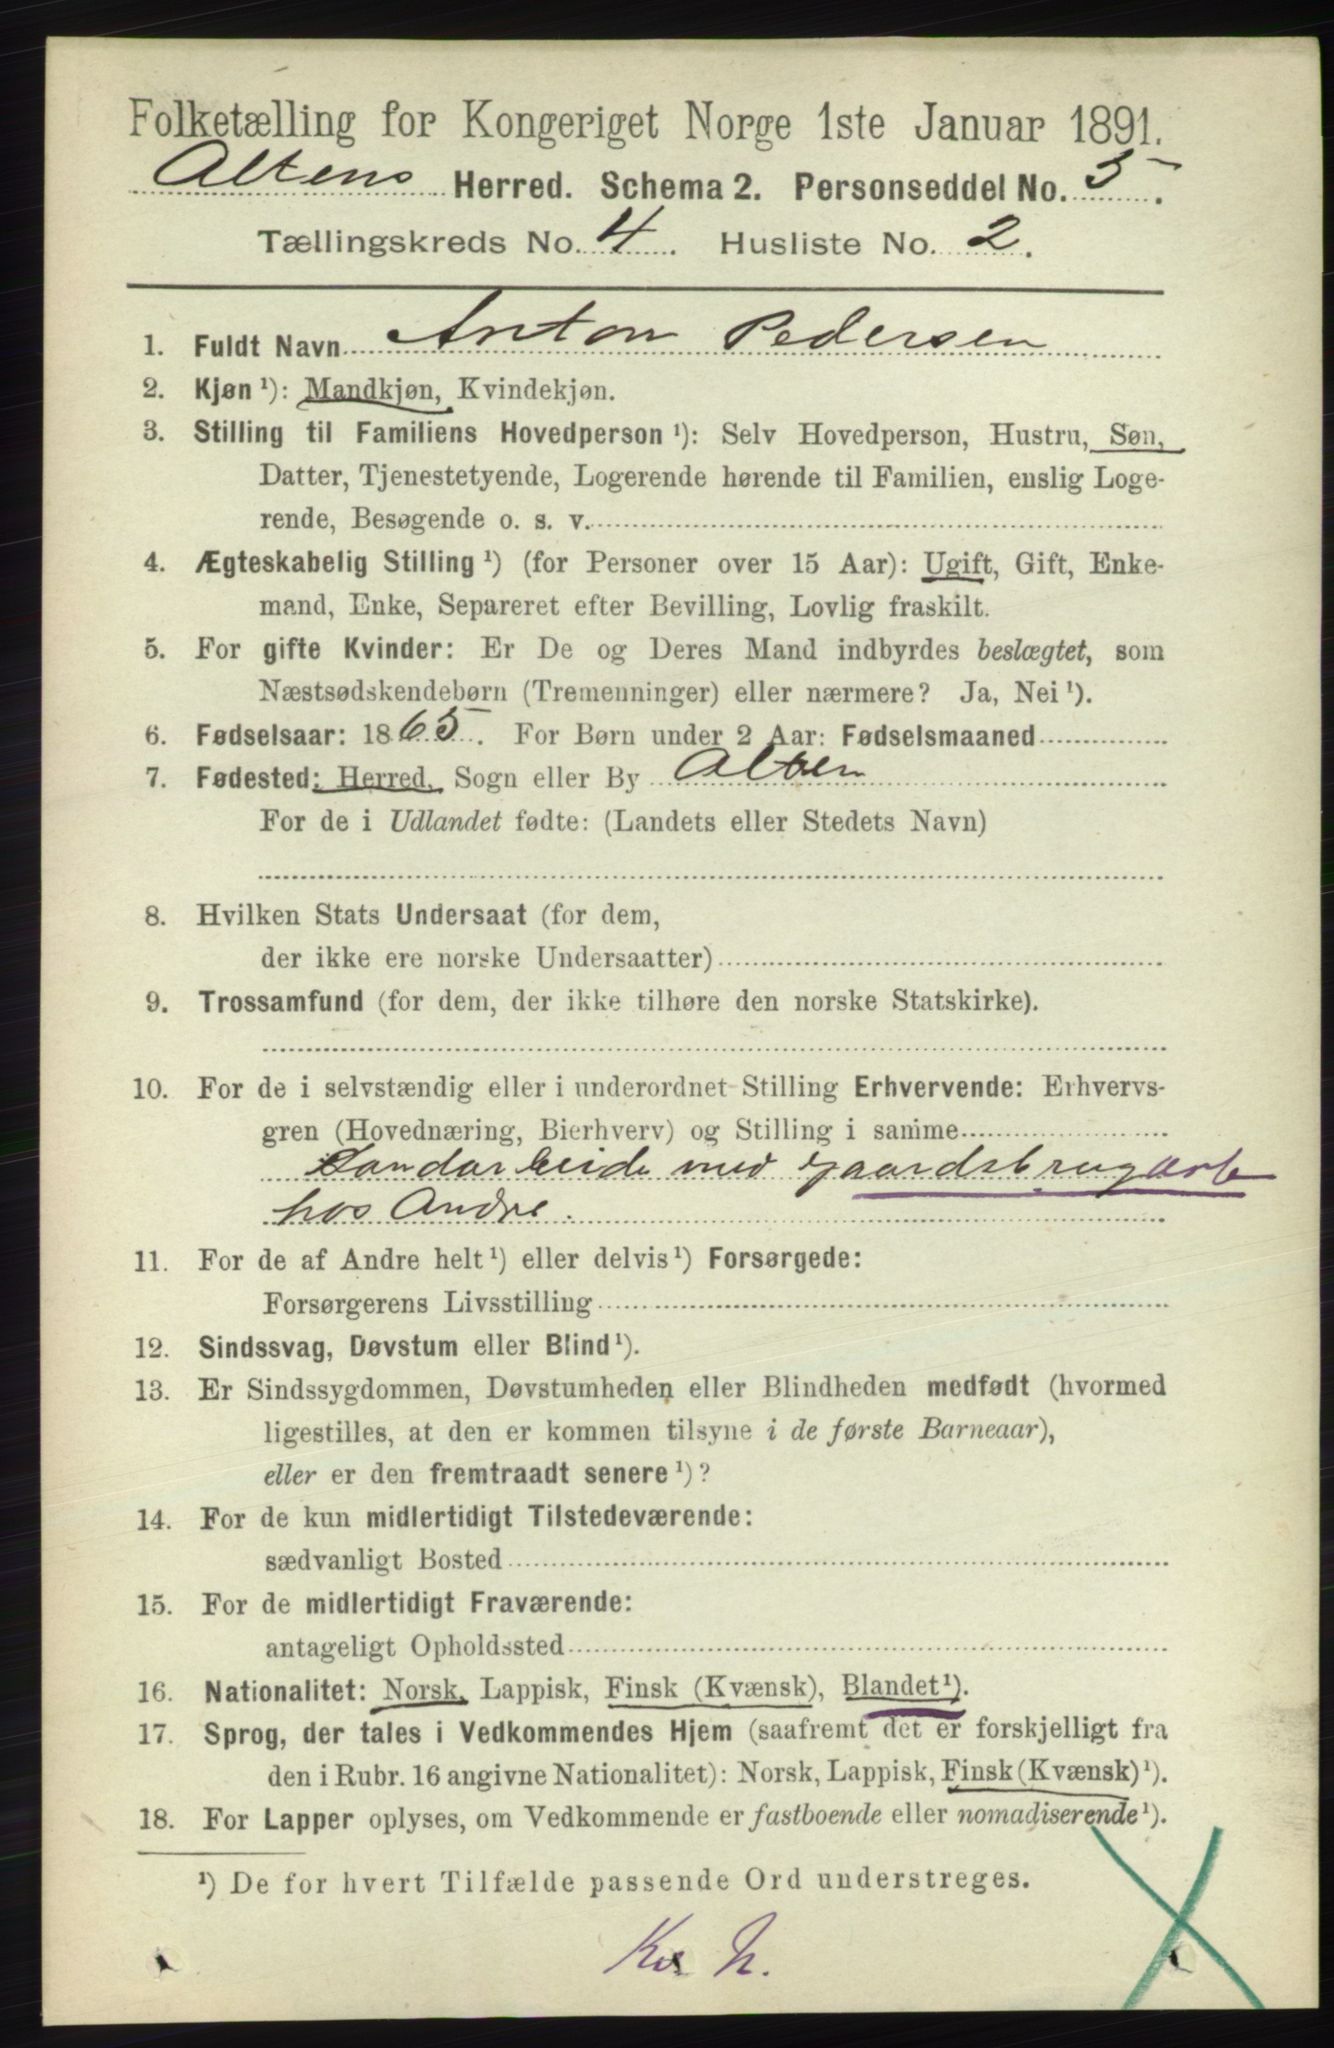 Folketælling for Kongeriget Norge 1ste Januar 1891.
Altens Herred. Schema 2. Personseddel No. 5.
Tællingskreds No. 4. Husliste No. 2.
1. Fuldt Navn Anton Pedersen
2. Kjøn ¹): Mandkjøn, Kvindekjøn.
3. Stilling til Familiens Hovedperson ¹): Selv Hovedperson, Hustru, Søn,
Datter, Tjenestetyende, Logerende hørende til Familien, enslig Loge-
rende, Besøgende o. s. v.
4. Ægteskabelig Stilling ¹) (for Personer over 15 Aar): Ugift, Gift, Enke-
mand, Enke, Separeret efter Bevilling, Lovlig fraskilt.
5. For gifte Kvinder: Er De og Deres Mand indbyrdes beslægtet, som
Næstsødskendebørn (Tremenninger) eller nærmere? Ja, Nei ¹).
6. Fødselsaar: 1865. For Børn under 2 Aar: Fødselsmaaned
7. Fødested: Herred, Sogn eller By Alten
For de i Udlandet fødte: (Landets eller Stedets Navn)
8. Hvilken Stats Undersaat (for dem,
der ikke ere norske Undersaatter)
9. Trossamfund (for dem, der ikke tilhøre den norske Statskirke).
10. For de i selvstændig eller i underordnet Stilling Erhvervende: Erhvervs-
gren (Hovednæring, Bierhverv) og Stilling i samme
med gaardsbrug arb
hos Andre.
11. For de af Andre helt ¹) eller delvis ¹) Forsørgede:
Forsørgerens Livsstilling
12. Sindssvag, Døvstum eller Blind ¹).
13. Er Sindssygdommen, Døvstumheden eller Blindheden medfødt (hvormed
ligestilles, at den er kommen tilsyne i de første Barneaar),
eller er den fremtraadt senere ¹)?
14. For de kun midlertidigt Tilstedeværende:
sædvanligt Bosted
15. For de midlertidigt Fraværende:
antageligt Opholdssted
16. Nationalitet: Norsk, Lappisk, Finsk (Kvænsk), Blandet ¹).
17. Sprog, der tales i Vedkommendes Hjem (saafremt det er forskjelligt fra
den i Rubr. 16 angivne Nationalitet): Norsk, Lappisk, Finsk (Kvænsk) ¹).
18. For Lapper oplyses, om Vedkommende er fastboende eller nomadiserende ¹).
¹) De for hvert Tilfælde passende Ord understreges.
Kv. N.